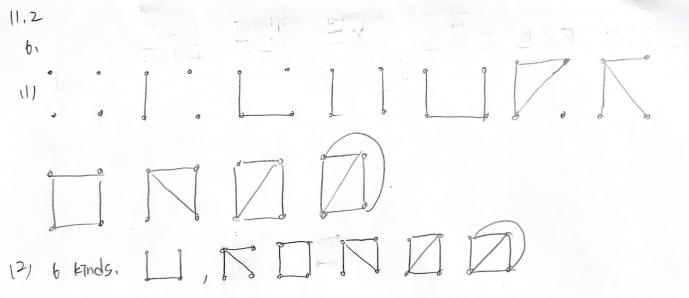 11.2
6.
(1)
(2) 6 kinds. ,